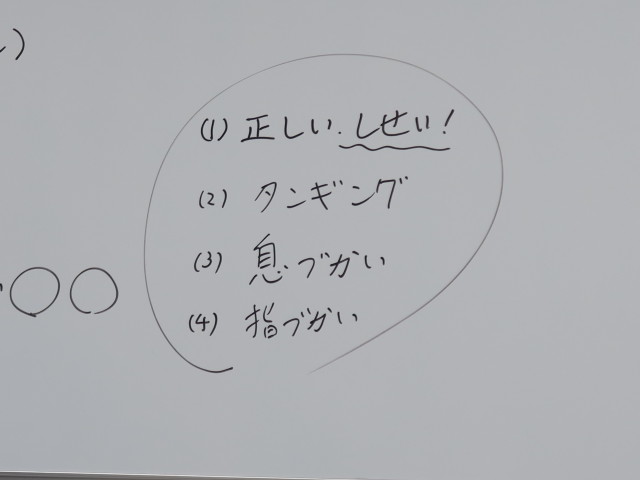 (1) 正しい.しせい!
(2) タンギング
(3) 息づかい
(4) 指づかい